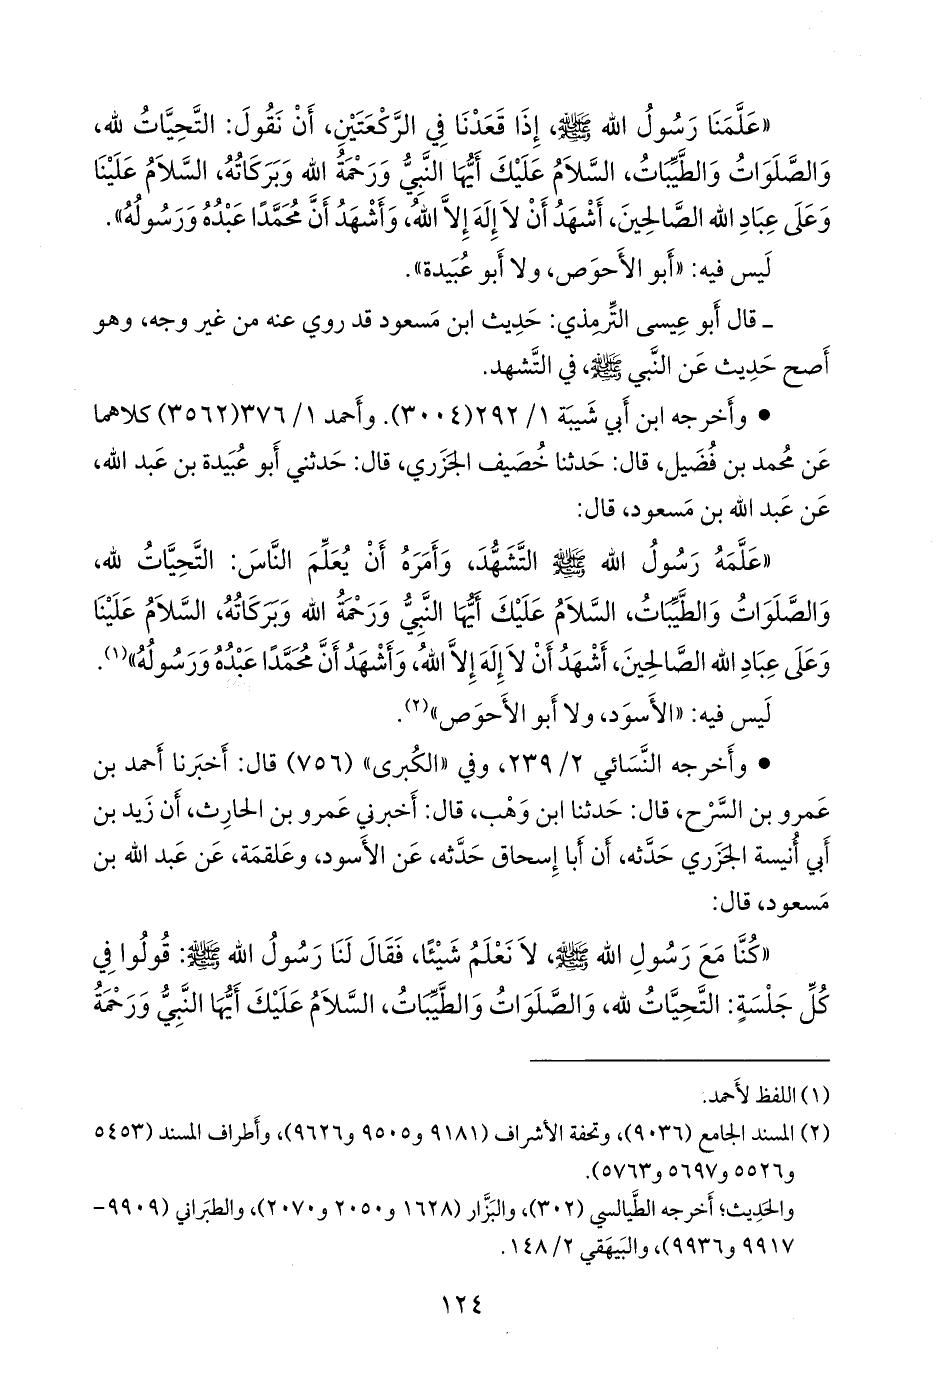 «عَلَّمَنَا رَسُولُ الله ﷺ، إِذَا قَعَدْنَا فِي الرَّكْعَتَيْنِ، أَنْ نَقُولَ: التَّحِيَّاتُ لله،
وَالصَّلَوَاتُ وَالطَّيِّبَاتُ، السَّلاَمُ عَلَيْكَ أَيُّهَا النَّبِيُّ وَرَحْمَةُ الله وَبَرَكَاتُهُ، السَّلاَمُ عَلَيْنَا
وَعَلَى عِبَادِ الله الصَّالِحِينَ، أَشْهَدُ أَنْ لاَ إِلَهَ إِلاَّ اللهُ، وَأَشْهَدُ أَنَّ مُحَمَّدًا عَبْدُهُ وَرَسُولُهُ».
لَيس فيه: «أَبو الأَحوَص، ولا أَبو عُبَيدة».
ـ قال أَبو عِيسى التِّرمِذي: حَدِيث ابن مَسعود قد روي عنه من غير وجه، وهو
أَصح حَدِيث عَن النَّبي ﷺ، في التَّشهد.
• وأَخرجه ابن أَبي شَيبَة ١/ ٢٩٢(٣٠٠٤). وأَحمد ١/ ٣٧٦(٣٥٦٢) كلاهما
عَن مُحمد بن فُضَيل، قال: حَدثنا خُصَيف الجَزَري، قال: حَدثني أَبو عُبَيدة بن عَبد الله،
عَن عَبد الله بن مَسعود، قال:
«عَلَّمَهُ رَسُولُ الله ﷺ التَّشَهُّدَ، وَأَمَرَهُ أَنْ يُعَلِّمَ النَّاسَ: التَّحِيَّاتُ لله،
وَالصَّلَوَاتُ وَالطَّيِّبَاتُ، السَّلاَمُ عَلَيْكَ أَيُّهَا النَّبِيُّ وَرَحْمَةُ الله وَبَرَكَاتُهُ، السَّلاَمُ عَلَيْنَا
وَعَلَى عِبَادِ الله الصَّالِحِينَ، أَشْهَدُ أَنْ لاَ إِلَهَ إِلاَّ اللهُ، وَأَشْهَدُ أَنَّ مُحَمَّدًا عَبْدُهُ وَرَسُولُهُ»(١).
لَيس فيه: «الأَسوَد، ولا أَبو الأَحوَص»(٢).
• وأَخرجه النَّسَائي ٢/ ٢٣٩، وفي «الكُبرى» (٧٥٦) قال: أَخبَرنا أَحمد بن
عَمرو بن السَّرْح، قال: حَدثنا ابن وَهْب، قال: أَخبرني عَمرو بن الحارِث، أَن زَيد بن
أَبي أُنيسة الجَزَري حَدَّثه، أَن أَبا إِسحاق حَدَّثه، عَن الأَسود، وعَلقمَة، عَن عَبد الله بن
مَسعود، قال:
«كُنَّا مَعَ رَسُولِ الله ﷺ، لاَ نَعْلَمُ شَيْئًا، فَقَالَ لَنَا رَسُولُ الله ﷺ: قُولُوا فِي
كُلِّ جَلْسَةٍ: التَّحِيَّاتُ لله، وَالصَّلَوَاتُ وَالطَّيِّبَاتُ، السَّلاَمُ عَلَيْكَ أَيُّهَا النَّبِيُّ وَرَحْمَةُ
(١) اللفظ لأَحمد.
(٢) المسند الجامع (٩٠٣٦)، وتحفة الأَشراف (٩١٨١ و٩٥٠٥ و٩٦٢٦)، وأَطراف المسند (٥٤٥٣
و٥٥٢٦ و٥٦٩٧ و٥٧٦٣).
والحَدِيث؛ أَخرجه الطَّيالسي (٣٠٢)، والبَزَّار (١٦٢٨ و٢٠٥٠ و٢٠٧٠)، والطبَراني (٩٩٠٩-
٩٩١٧ و٩٩٣٦)، والبَيهَقي ٢/ ١٤٨.
١٢٤